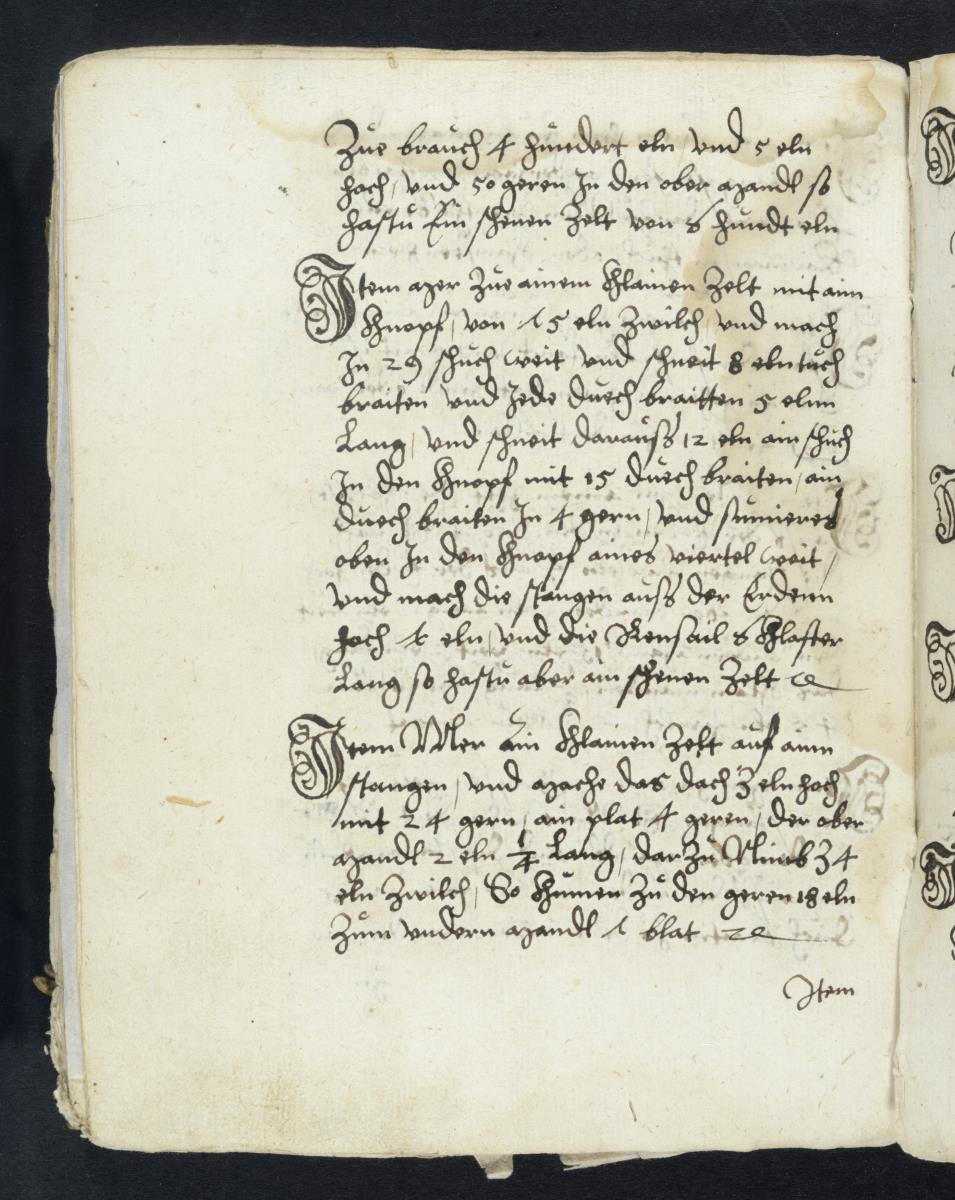 Zue brauch 4 hundert eln vnd 5 eln
hoch, vnd 50 geren In den ober mandl so
hastu Ein schenen Zelt von 6 hundt eln
Item mer Zue ainem Khlainen Zelt mit aim
Khnopf, von 15 eln Zwilch vnd mach
In 29 schuch weit vnd schneit 8 eln tuch
braiten vnd Jede duech braitten 5 elnn
Lang, vnd schneit darauss 12 eln ain schuch
In den Khnopf mit 15 duech braiten, ain
duech braiten In 4 gern, vnd
oben In den Khnopf aines viertel weit,
vnd mach die stangen auss der Erdenn
hoch eln, vnd die Rensail 6 Khlafter
Lang so hastu aber ain schenen Zelt
Item Mer Ain Khlainen Zelt auf ainn
stangen, vnd mache das dach 3 eln hoch
mit 24 gern, ain plat 4 geren, der ober
mandl 2 eln 1/4 Lang, dar Zu Nimb 34
eln Zwilch, So Khumen Zu den geren 18 eln
Zum vndern mandl 1 blat
Item